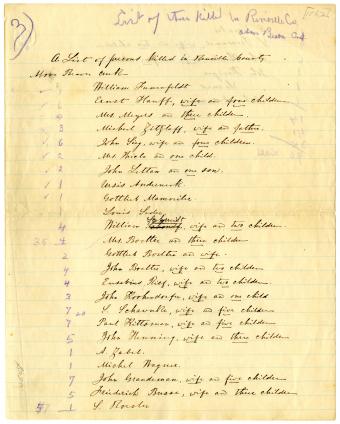 List of those killed in Renville Co.
A List of persons killed in Renville County
William Innefeldt
Ernst Hauff, wife and four children
Mrs Meyer and three children
Michel Zitzlaff, wife and father.
John Sieg, wife and four children.
Mrs Thiele and one child.
John Zitlau and one son.
Gottlieb Mannweiler
Louis Seder
William Schmidt, wife and two children.
Mrs. Boelter and three children
Gottlieb Boelter and wife.
John Boelter, wife and two children
Eusebius Reif, wife and two children.
John Kochendorfer, wife and one child
S. Schwandt, wife and five children
Paul Kitzman, wife and five children.
John Henning, wife and three children
A. Zabel.
Michel Wagner.
John Grundeman, wife and five children
Heinrich Busse, wife and three children
L. Roessler